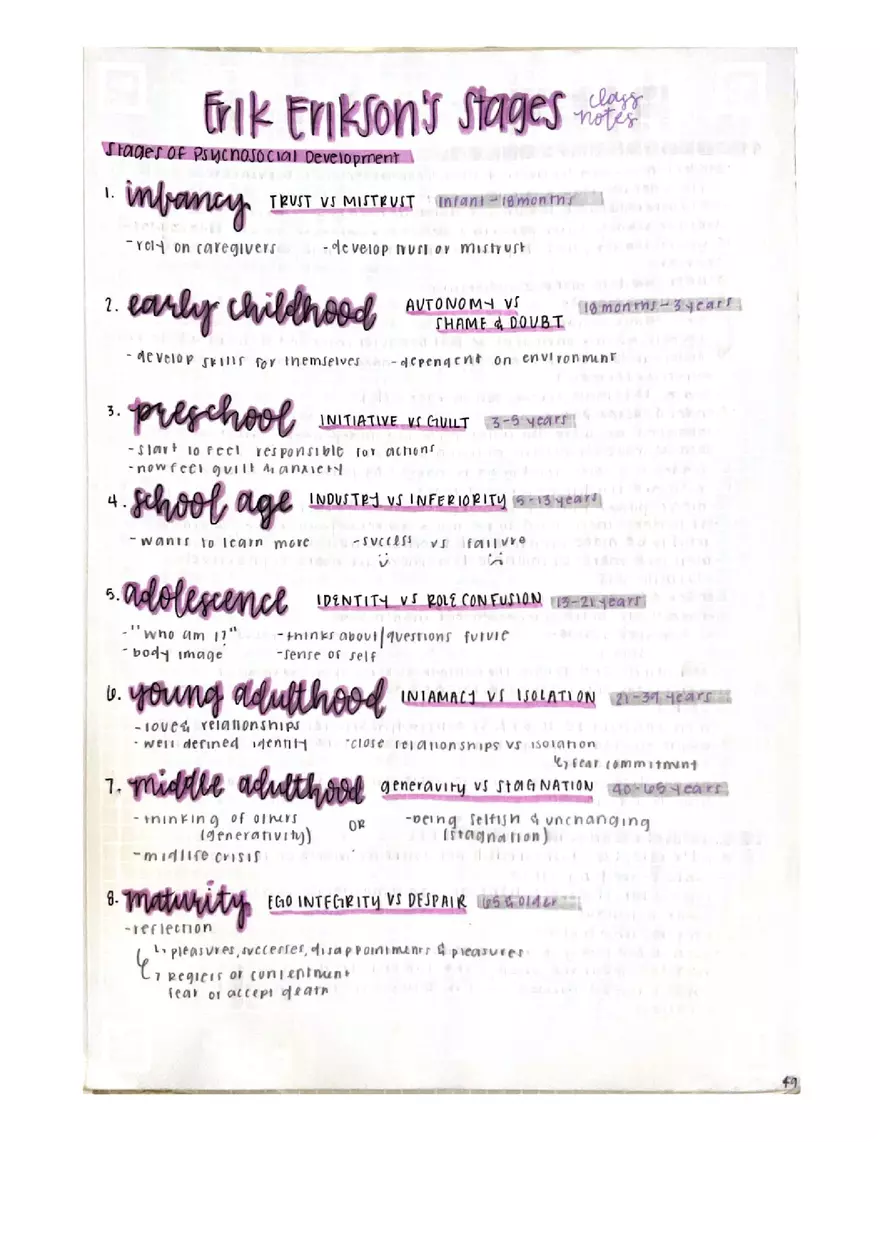 Erik Erikson's Stages class notes
Stages of Psychosocial Development
1. infancy TRUST VS MISTRUST Infant - 18 months
- rely on caregivers - develop trust or mistrust
2. early childhood AUTONOMY VS SHAME & DOUBT 18 months - 3 years
- develop skills for themselves - dependent on environment
3. preschool INITIATIVE VS GUILT 3-5 years
- start to feel responsible for actions
- now feel guilt & anxiety
4. school age INDUSTRY VS INFERIORITY 5-13 years
- wants to learn more - success vs failure
5. adolescence IDENTITY VS ROLE CONFUSION 13-21 years
- "who am I?" - thinks about/questions future
- body image - sense of self
6. young adulthood INTAMACY VS ISOLATION 21-39 years
- love & relationships
- well defined identity - close relationships vs isolation
↳ fear commitment
7. middle adulthood generavity VS STAGNATION 40-65 years
- thinking of others (generativity) OR - being selfish & unchanging (stagnation)
- midlife crisis
8. maturity EGO INTEGRITY VS DESPAIR 65 & older
- reflection
↳ pleasures, successes, disappointments & pleasures
↳ Regrets or contentment
fear or accept death
49